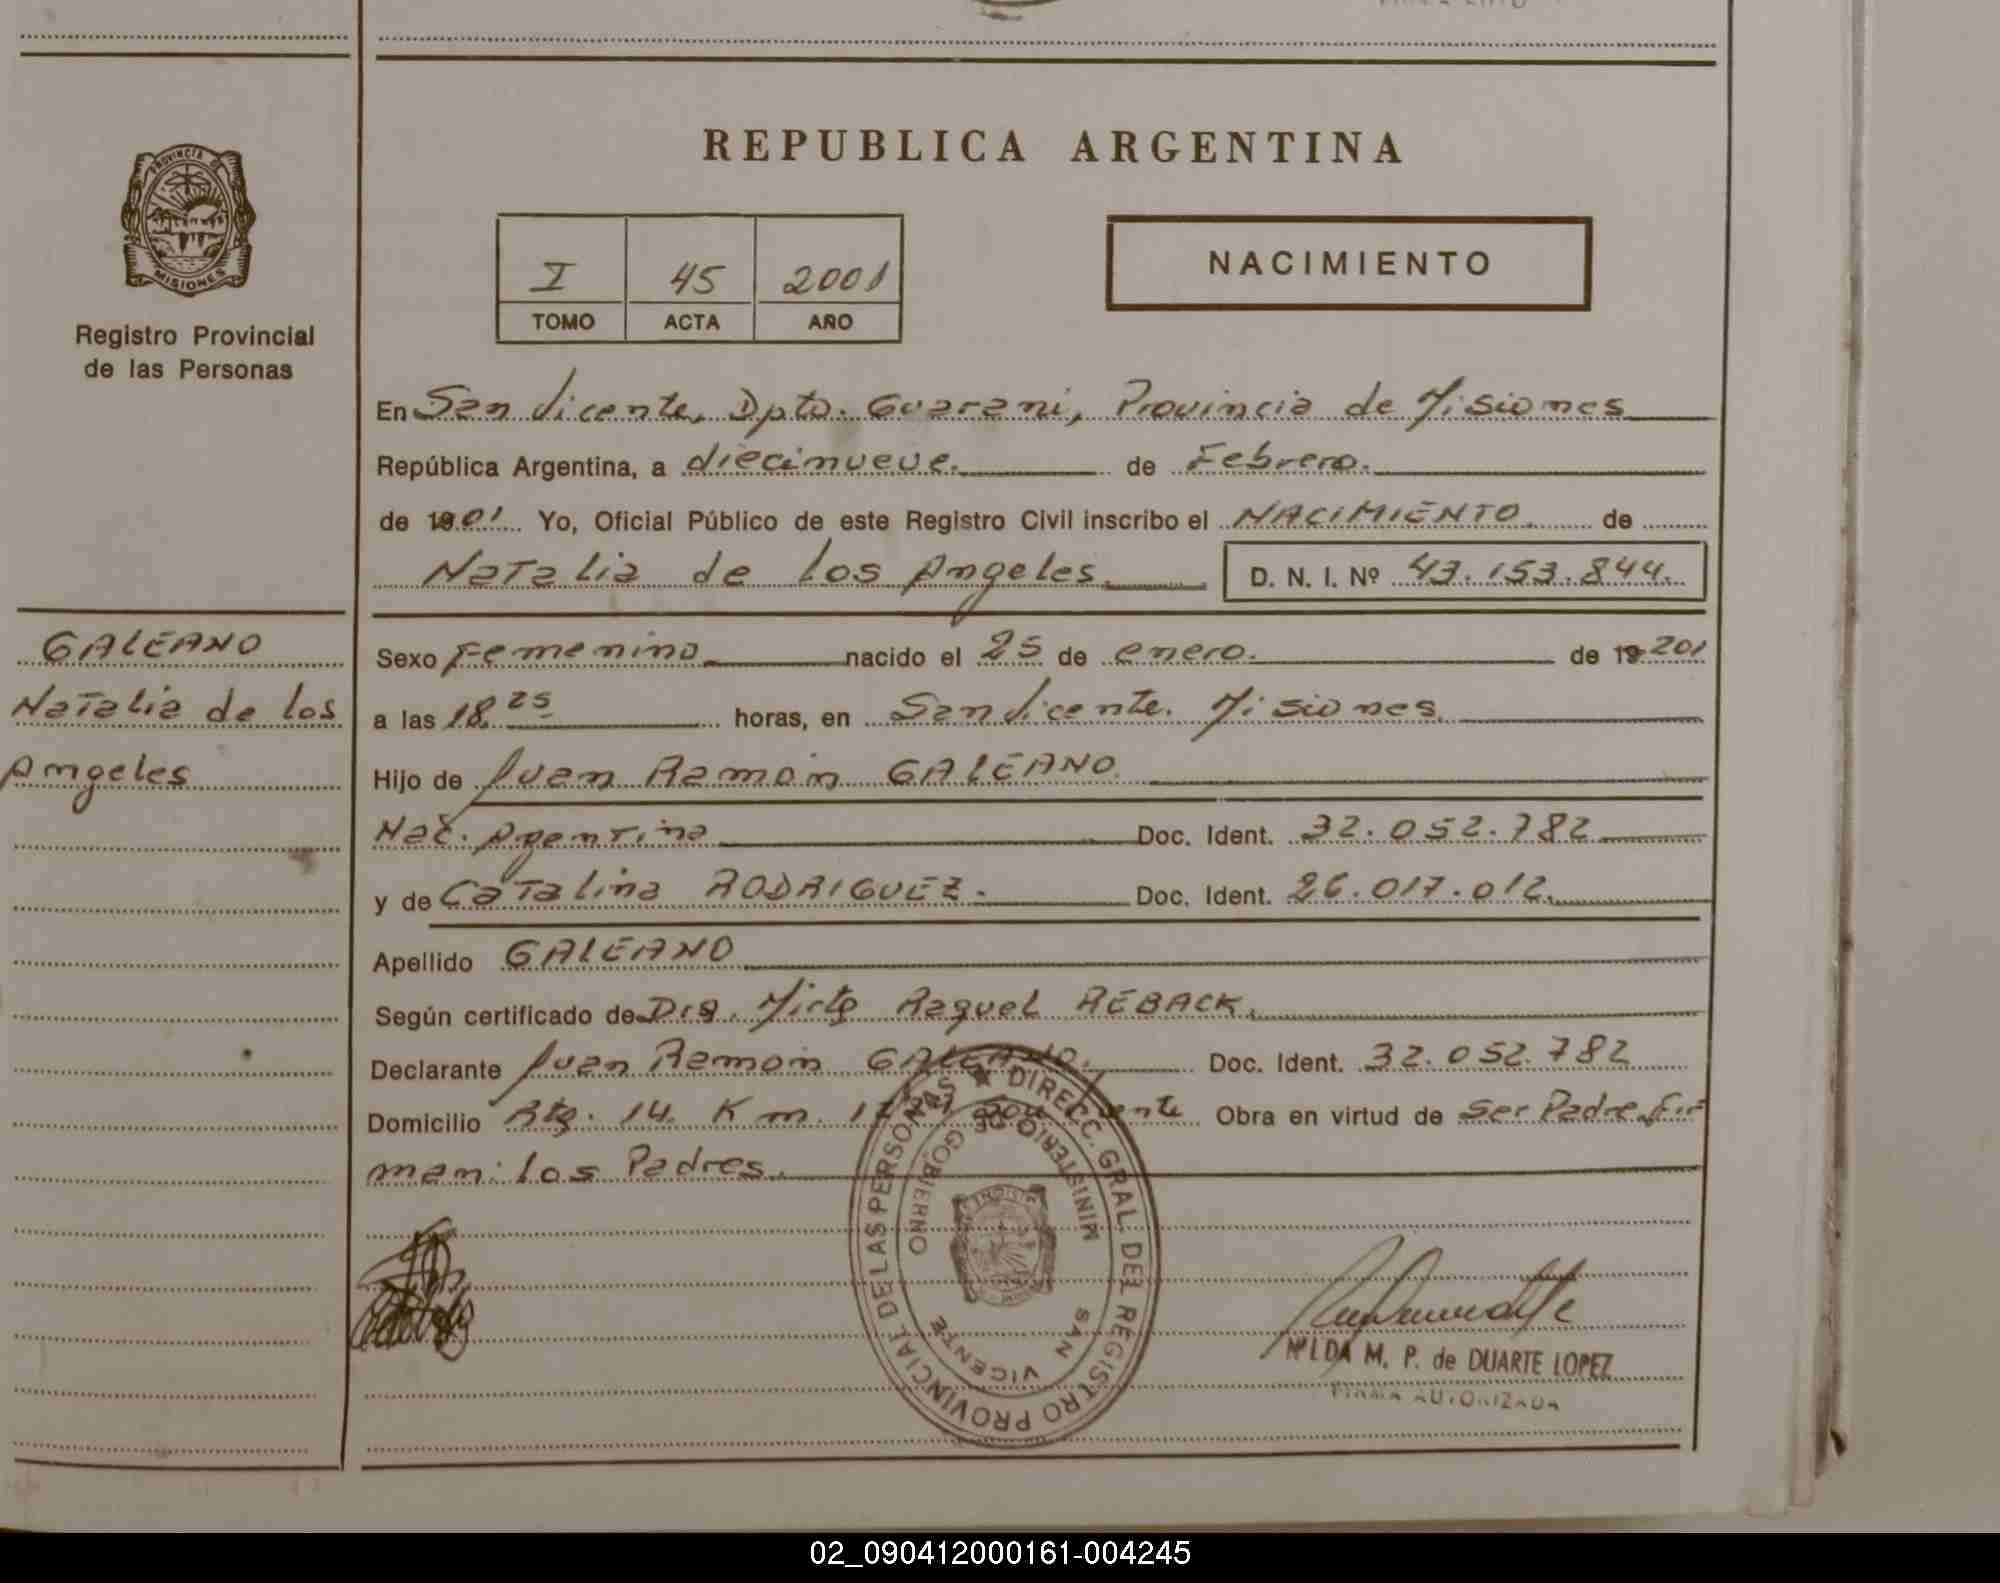 REPUBLICA ARGENTINA
PROVINCIA DE
MISIONES
Registro Provincial
de las Personas
I 45 2001
TOMO ACTA AÑO
NACIMIENTO
En San Vicente, Dpto. Guarani, Provincia de Misiones
República Argentina, a diecinueve. de Febrero.
de 1901 Yo, Oficial Público de este Registro Civil inscribo el NACIMIENTO de
Natalia de los Angeles D. N. I. Nº 43.153.844.
GALEANO
Natalia de los
Angeles
Sexo Femenino nacido el 25 de enero. de 19 201
a las 18.25 horas, en San Vicente. Misiones.
Hijo de Juan Ramón GALEANO.
Nac. Argentina Doc. Ident. 32.052.782
y de Catalina RODRIGUEZ. Doc. Ident. 26.017.012.
Apellido GALEANO
Según certificado de Dra. Mirta Raquel REBACK.
Declarante Juan Ramón GALEANO. Doc. Ident. 32.052.782
Domicilio Rta. 14. Km. Obra en virtud de Ser Padre. Fir
man: los Padres.
DIRECC. GRAL. DEL REGISTRO PROVINCIAL DE LAS PERSONAS
MINISTERIO DE GOBIERNO
SAN VICENTE
NILDA M. P. de DUARTE LOPEZ
FIRMA AUTORIZADA
02_090412000161-004245